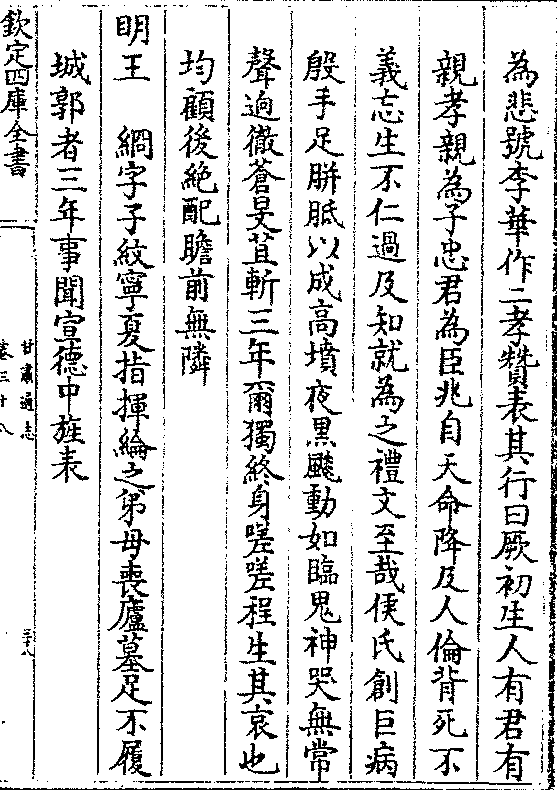 為悲號李華作二孝贊表其行曰厥初生人有君有
親孝親為子忠君為臣兆自天命降及人倫背死不
義忘生不仁過及知就為之禮文至哉侯氏創巨病
殷手足胼胝以成高墳夜黑飈動如臨鬼神哭無常
聲逈徹蒼旻苴斬三年爾獨終身嗟嗟程生其哀也
均顧後絶配瞻前無隣
明王　綱字子紋寧夏指揮綸之弟母喪廬墓足不履
城郭者三年事聞宣德中旌表
欽定四庫全書
甘肅通志
卷三十八
三十八